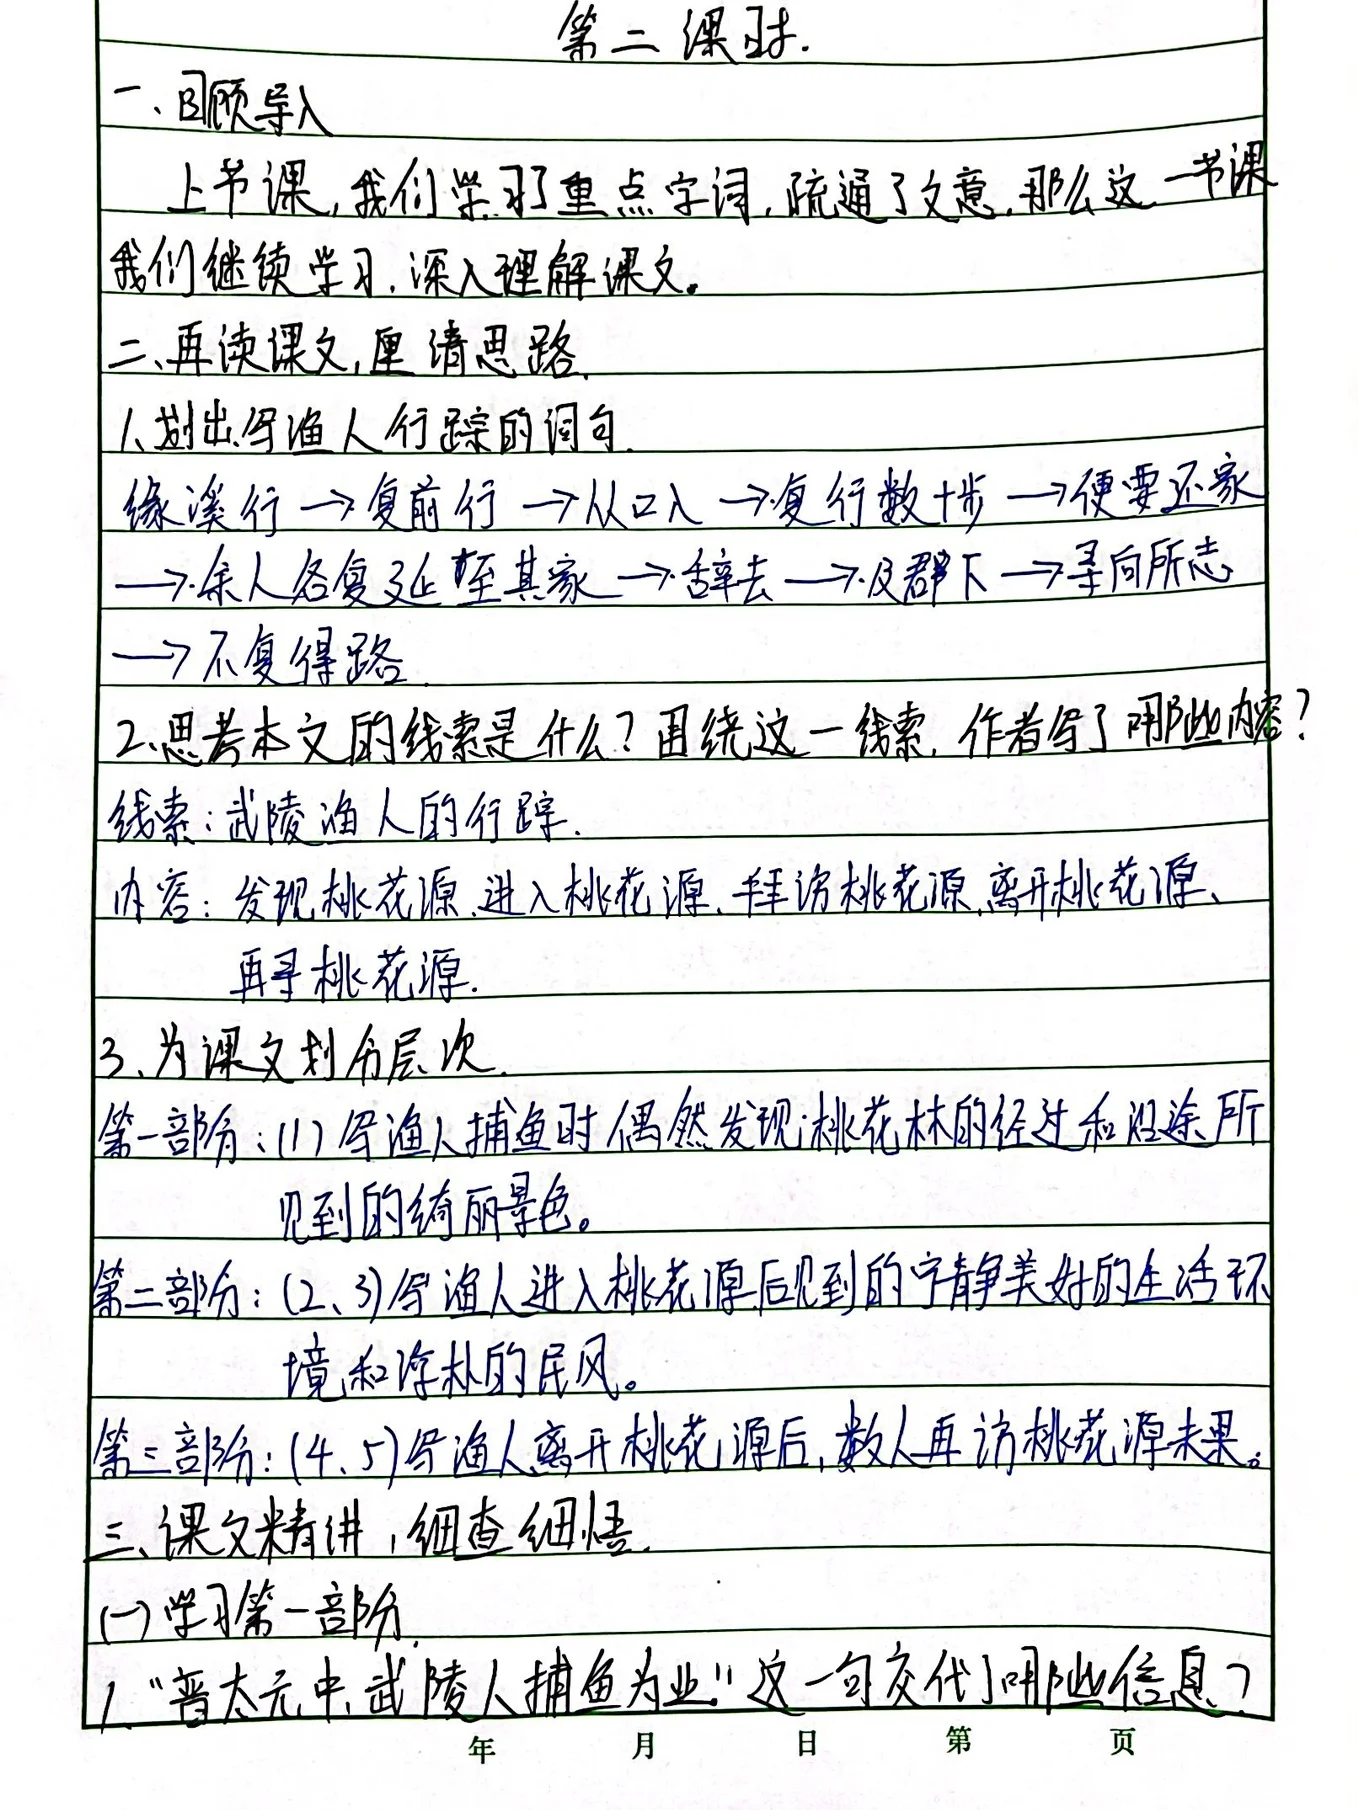 第二课时.
一、回顾导入
上节课,我们学习了重点字词,疏通了文意,那么这一节课
我们继续学习,深入理解课文。
二、再读课文,厘清思路.
1、划出写渔人行踪的词句.
缘溪行→复前行→从口入→复行数十步→便要还家
→余人各复延至其家→辞去→及郡下→寻向所志
→不复得路.
2、思考本文的线索是什么?围绕这一线索,作者写了哪些内容?
线索:武陵渔人的行踪.
内容:发现桃花源、进入桃花源、拜访桃花源、离开桃花源、
再寻桃花源.
3、为课文划分层次.
第一部分:(1)写渔人捕鱼时偶然发现桃花林的经过和沿途所
见到的绮丽景色。
第二部分:(2、3)写渔人进入桃花源后见到的宁静美好的生活环
境和淳朴的民风。
第三部分:(4、5)写渔人离开桃花源后,数人再访桃花源未果。
三、课文精讲,细查细悟.
(一)学习第一部分.
1."晋太元中,武陵人捕鱼为业"这一句交代了哪些信息?
年 月 日 第 页